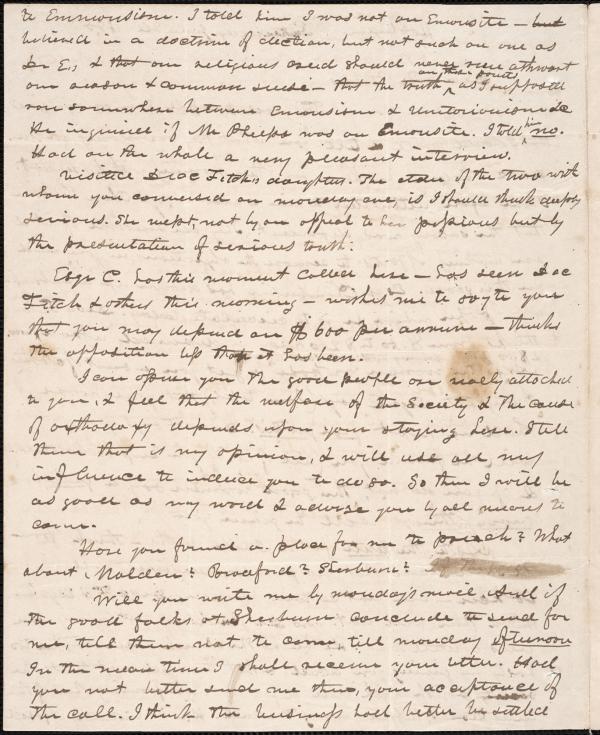 to Emmonsism. I told him I was not an Emonsite — but
believed in a doctrine of election, but not such an one as
Dr E., & that our religious creed should never run athwart
our reason & common sense — that the truth on these points as I supposed
ran somewhere between Emonsism & Unitarianism &c
He inquired if Mr Phelps was an Emonsite. I told him no.
Had on the whole a very pleasant interview.
Visited Doc Fitch's daughters. The elder of the two with
whom you conversed on monday eve, is I should think deeply
serious. She wept, not by an appeal to her passions but by
the presentation of serious truth.
Esqr C. has this moment called here — has seen Doc
Fitch & others this morning — wishes me to say to you
that you may depend on $600 per annum — thinks
the opposition less than it has been.
I can assure you the good people are really attached
to you, & feel that the welfare of the Society & the cause
of orthodoxy depends upon your staying here. I tell
them that is my opinion, & will use all my
influence to induce you to do so. So then I will be
as good as my word & advise you by all means to
come.
Have you found a place for me to preach? What
about Malden? Bradford? Sherburn?
Will you write me by monday's mail. And if
the good folks at Sherburn conclude to send for
me, tell them not to come, till monday afternoon
In the mean time I shall receive your letter. Had
you not better send me then, your acceptance of
the call. I think the business had better be settled